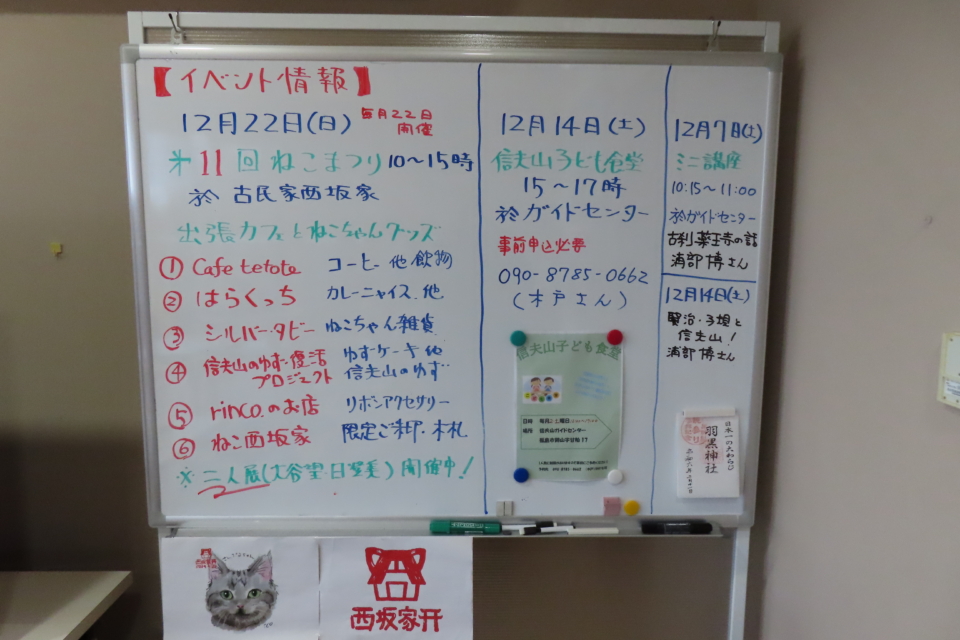 【イベント情報】
12月22日(日) 毎月22日
開催
第11回ねこまつり 10〜15時
於 古民家西坂家
出張カフェとねこちゃんグッズ
① Cafe tetote コーヒー他飲物
② はらくっち カレーニャイス.他
③ シルバー・タビー ねこちゃん雑貨
④ 信夫山のゆず・復活
プロジェクト
ゆずケーキ他
信夫山のゆず
⑤ rinco.のお店 リボンアクセサリー
⑥ ねこ西坂家 限定ご朱印・木札
※二人展( 開催中!
12月14日(土)
信夫山子ども食堂
15〜17時
於ガイドセンター
事前申込必要
090-8785-0662
(木戸さん)
信夫山子ども食堂
日時
場所 信夫山ガイドセンター
12月7日(土)
ミニ講座
10:15〜11:00
於ガイドセンター
古刹・薬王寺の話
浦部博さん
12月14日(土)
賢治・子規と
信夫山!
浦部博さん
日本一の大わらじ
羽黒神社
西坂家
西坂家